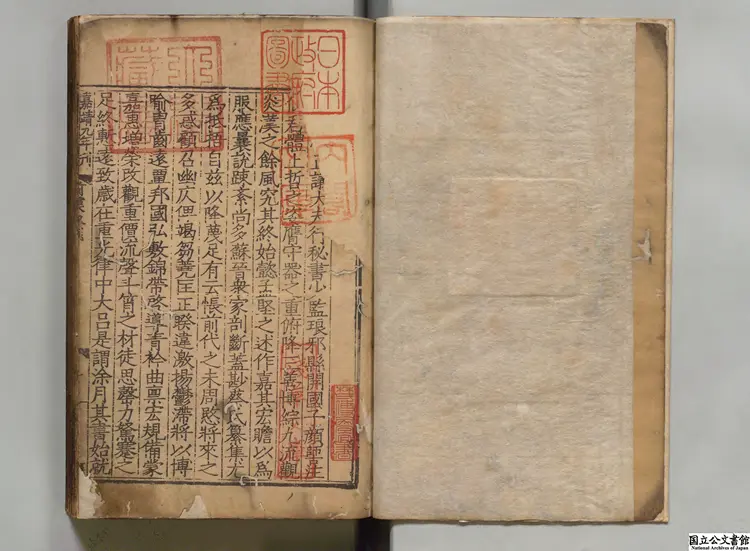 日本
政府
圖書
議大夫行秘書少監琅邪縣開國子顏師古注
君體上哲之姿膺守器之重俯降三善博綜九流觀
炎漢之餘風究其終始懿孟堅之述作嘉其宏贍以爲
服應曩說疎紊尚多蘇晉衆家剖斷蓋尠蔡氏纂集尤
爲抵捂自兹以降蔑足有云悵前代之未周愍將來之
多惑顧召幽仄俾竭芻蕘匡正睽違激揚鬱滯將以博
喻胄齒遠覃邦國弘敷錦帶啓導青衿曲稟宏規備蒙
嘉惠增榮改觀重價流聲斗筲之材徒思罄力駑蹇之
足終慚遠致歲在重光律中大呂是謂涂月其書始就
嘉靖九年刊
国立公文書館
National Archives of Japan